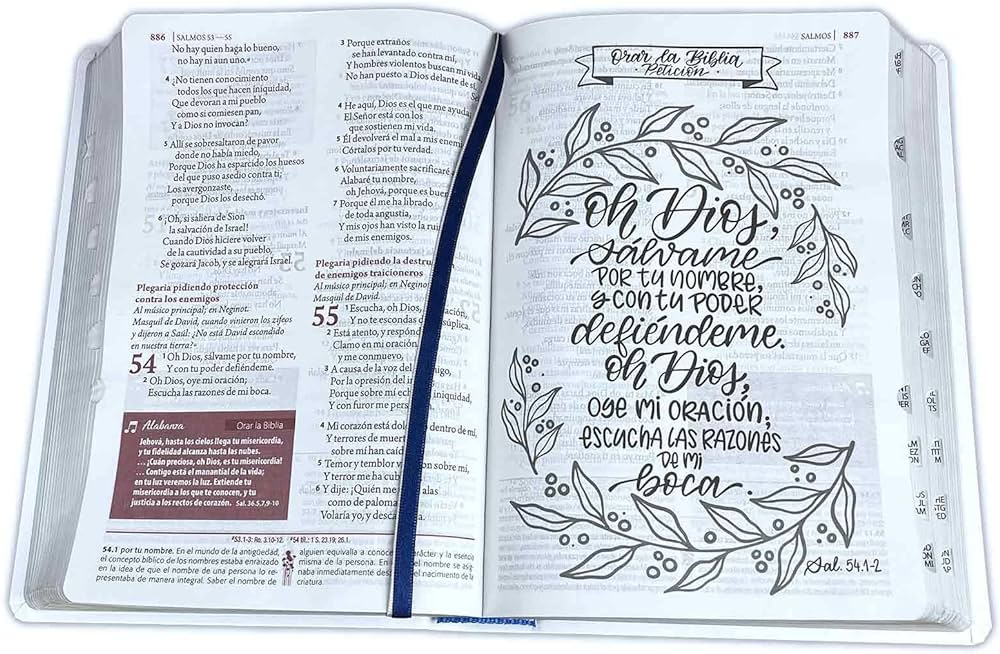 886 | SALMOS 53—55
No hay quien haga lo bueno,
no hay ni aun uno.
4 ¿No tienen conocimiento
todos los que hacen iniquidad,
Que devoran a mi pueblo
como si comiesen pan,
Y a Dios no invocan?
5 Allí se sobresaltaron de pavor
donde no había miedo,
Porque Dios ha esparcido los huesos
del que puso asedio contra ti;
Los avergonzaste,
porque Dios los desechó.
6 ¡Oh, si saliera de Sion
la salvación de Israel!
Cuando Dios hiciere volver
de la cautividad a su pueblo,
Se gozará Jacob, y se alegrará Israel.
Plegaria pidiendo protección
contra los enemigos
Al músico principal; en Neginot.
Masquil de David, cuando vinieron los zifeos
y dijeron a Saúl: ¿No está David escondido
en nuestra tierra?
54 1 Oh Dios, sálvame por tu nombre,
Y con tu poder defiéndeme.
2 Oh Dios, oye mi oración;
Escucha las razones de mi boca.
Alabanza Orar la Biblia
Jehová, hasta los cielos llega tu misericordia,
y tu fidelidad alcanza hasta las nubes.
… ¡Cuán preciosa, oh Dios, es tu misericordia!
… Contigo está el manantial de la vida;
en tu luz veremos la luz. Extiende tu
misericordia a los que te conocen, y tu
justicia a los rectos de corazón. Sal. 36.5,7,9-10
3 Porque extraños
se han levantado contra mí,
Y hombres violentos buscan mi vida
No han puesto a Dios delante de
4 He aquí, Dios es el que me ayuda;
El Señor está con los
que sostienen mi vida.
5 Él devolverá el mal a mis
Córtalos por tu verdad.
6 Voluntariamente sacrificaré
Alabaré tu nombre,
oh Jehová, porque es
7 Porque él me ha librado
de toda angustia,
Y mis ojos han visto la
de mis enemigos.
Plegaria pidiendo la
de enemigos traicioneros
Al músico principal; en Neginot.
Masquil de David.
55 1 Escucha, oh Dios,
Y no te escondas súplica.
2 Está atento, y
Clamo en mi oración
y me conmuevo,
3 A causa de la voz del
Por la opresión del
Porque sobre mí iniquidad,
Y con furor me
4 Mi corazón está dentro de mí,
Y terrores de muerte
sobre mí han
5 Temor y temblor sobre mí,
Y terror me ha
6 Y dije: ¡Quién me alas
como de paloma
Volaría yo, y
53.1-3: Ro. 3.10-12. 54 tít.: 1 S. 23.19; 26.1.
54.1 por tu nombre. En el mundo de la antigüedad,
el concepto bíblico de los nombres estaba enraizado
en la idea de que el nombre de una persona lo re-
presentaba de manera integral. Saber el nombre de
alguien equivalía a conocer carácter y la esencia
misma de la persona. En nombre se asig-
naba inmediatamente nacimiento de la
criatura.
SALMOS | 887
Orar la Biblia
Petición
Oh Dios,
sálvame
por tu nombre,
y con tu poder
defiéndeme.
Oh Dios,
oye mi oración;
escucha las razones
de mi
boca.
Sal. 54.1-2